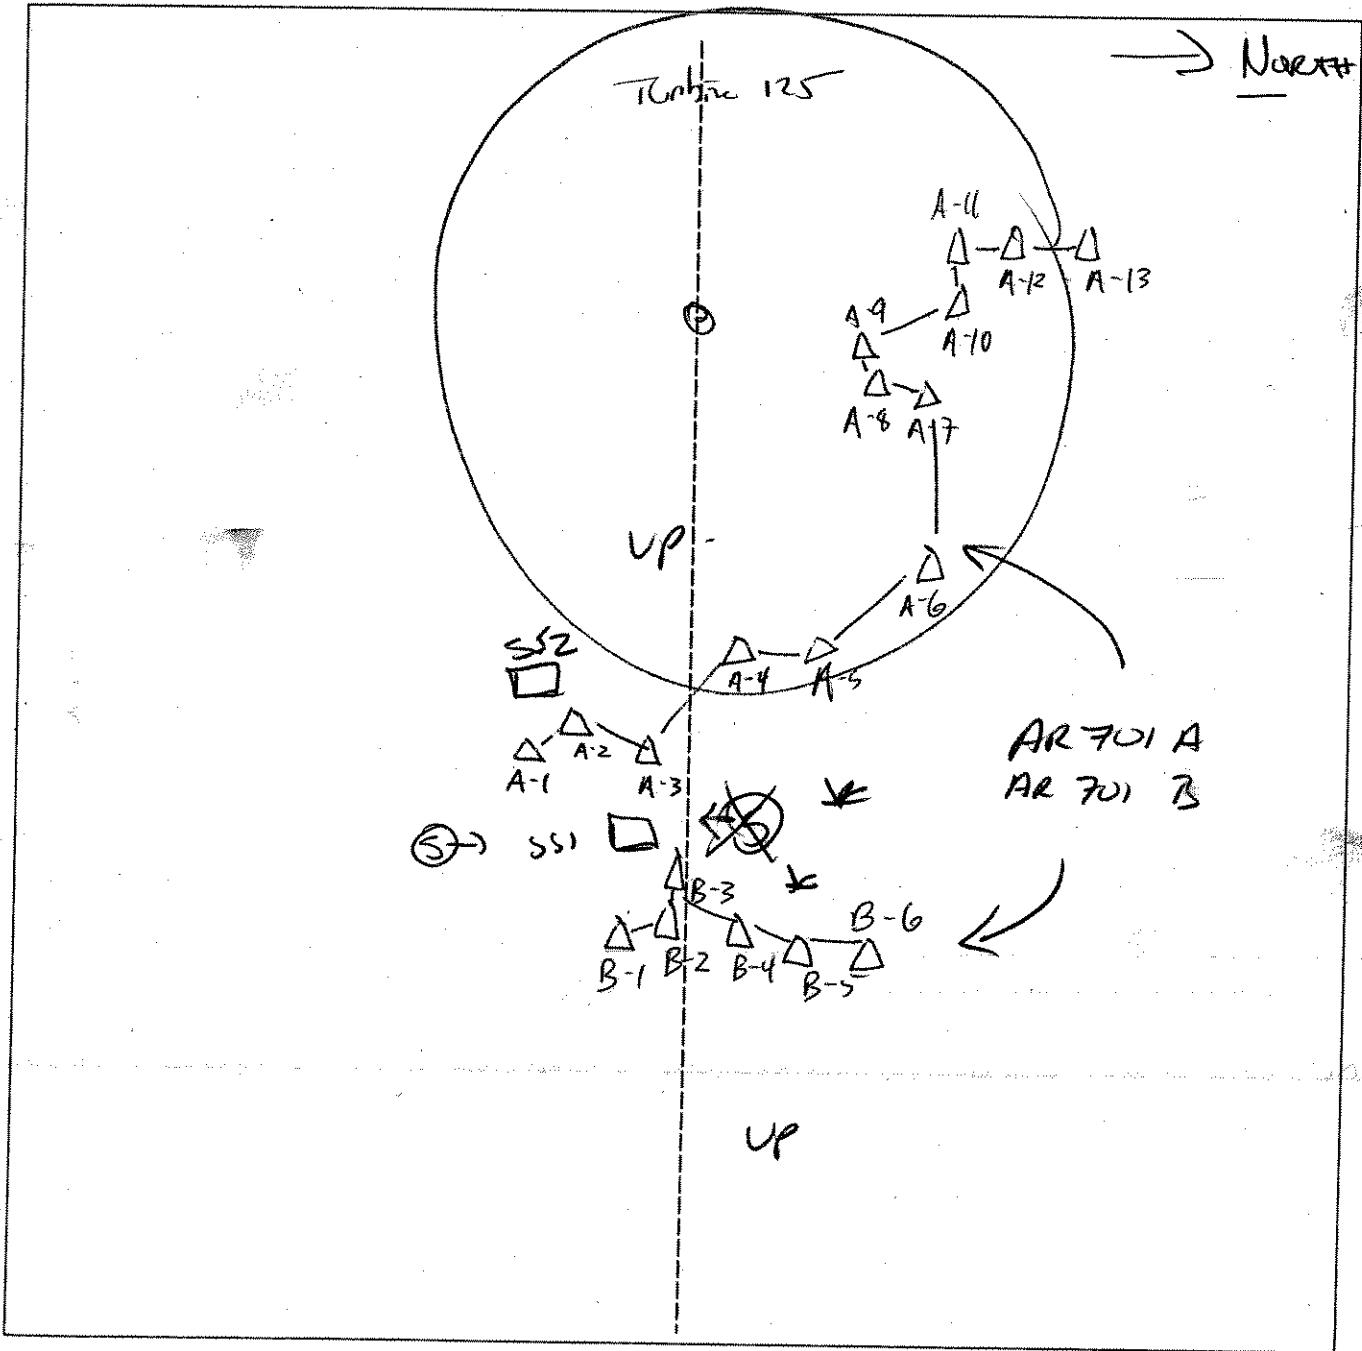 → NORTH
Turbine 125
A-11
A-12
A-13
A-9
A-10
A-8
A-7
UP
A-6
SS2
A-4
A-5
A-2
A-1
A-3
AR 701 A
AR 701 B
S → SS1
B-3
B-6
B-1
B-2
B-4
B-5
UP